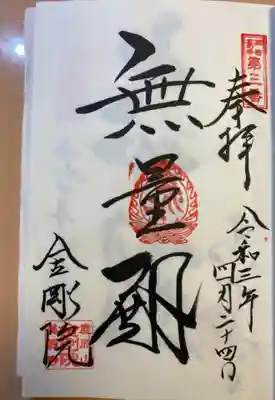 第三番
奉拝
令和三年
四月二十四日
無量殿
金剛院